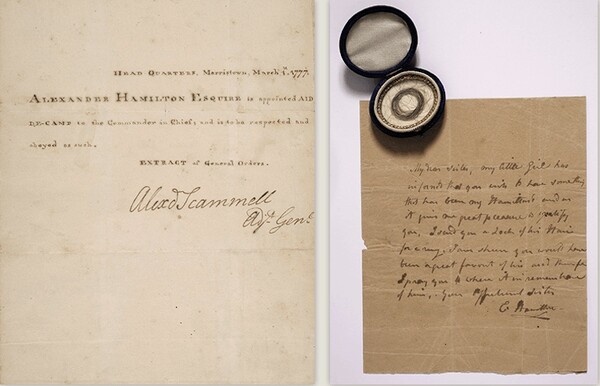 HEAD QUARTERS, Morristown, March 1st. 1777.
ALEXANDER HAMILTON ESQUIRE is appointed AID
DE-CAMP to the Commander in Chief; and is to be respected and
obeyed as such.
EXTRACT of General Orders.
Alexd Scammell
Adjt Genl
My dear Sister, my little Girl has
informed that you wish to have something
that has been my Hamilton's and as
it gives me great pleasure to gratify
you, I send you a Lock of his Hair
for a ring, I am shure you would have
been a great favourt of his and
I pray you to where it in remembrance
of him, Your Sister
E Hamilton